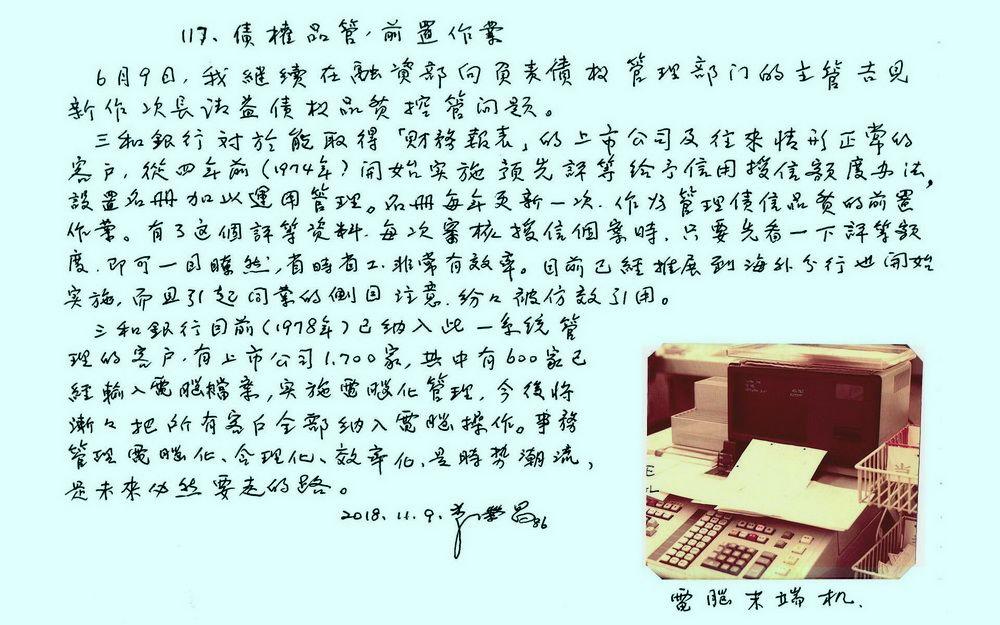 117、債權品管,前置作業
6月9日,我繼續在融資部向負責債权管理部门的主管吉見
新作次長請益債权品質控管问题。
三和銀行对於能取得「财務報表」的上市公司及往來情形正常的
客户,從四年前(1974年)開始实施預先評等给予信用授信額度办法,
設置名册加以運用管理。名册每年更新一次.作为管理債信品質的前置
作業。有了这個評等資料.每次審核授信個案時.只要先看一下評等額
度.即可一目瞭然,省時省工.非常有效率。目前已經推展到海外分行也開始
实施,而且引起同業的側目注意.紛々被仿效引用。
三和銀行目前(1978年)已纳入此一系统管
理的客户.有上市公司1.700家,其中有600家已
經輸入電腦檔案,实施電腦化管理,今後將
漸々把所有客户全部纳入電腦操作。事務
管理電腦化、合理化、效率化.是時势潮流,
是未來必然要走的路。
2018.11.9.
86
電腦末端机.